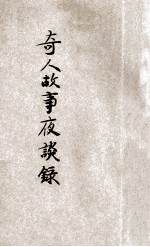 奇人故事夜談録